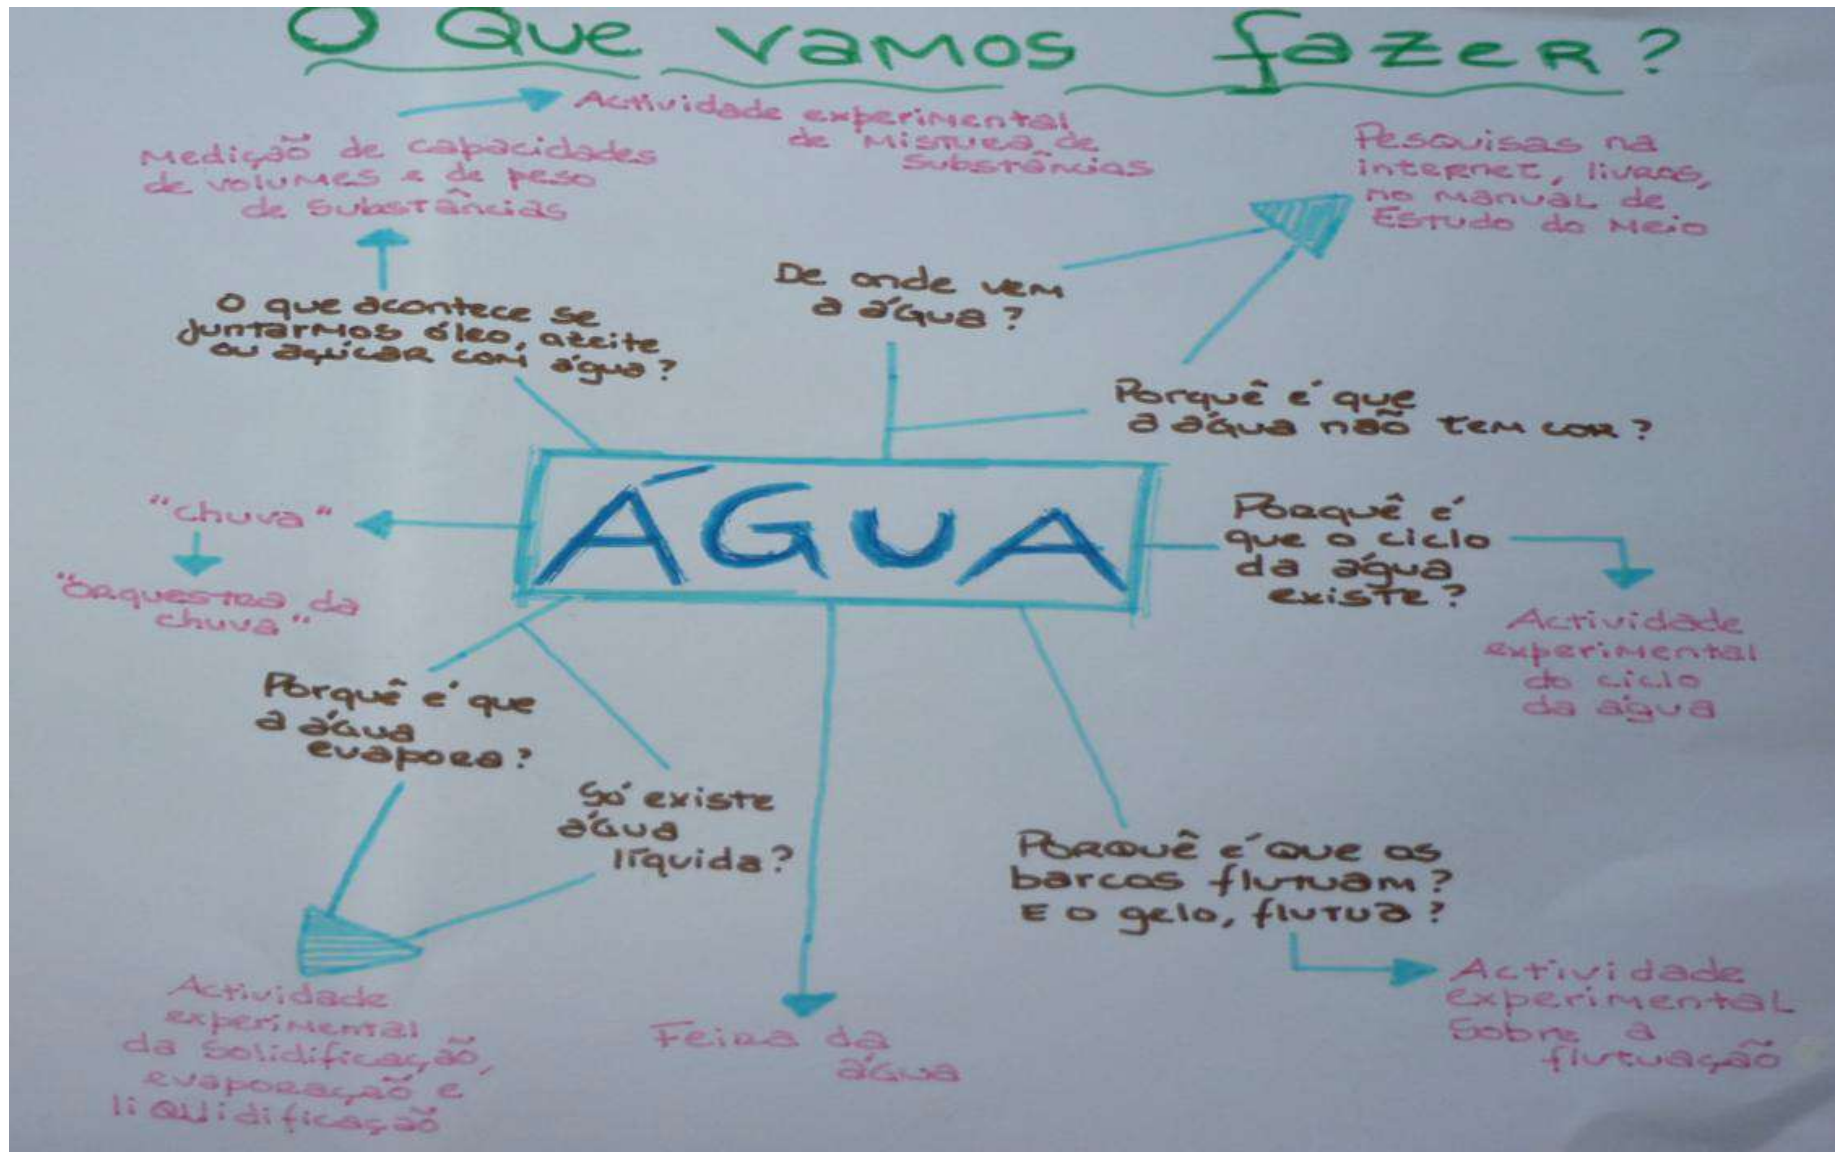 O QUE VAMOS fazer?
Actividade experimental
de Mistura de
Substâncias
Medição de capacidades
de volumes e de peso
de substâncias
Pesquisas na
internet, livros,
no manual de
Estudo do Meio
De onde vem
a água?
O que acontece se
juntarmos óleo, azeite
ou açúcar com água?
Porquê é que
a água não tem cor?
ÁGUA
"chuva"
"Orquestra da
chuva"
Porquê é
que o ciclo
da água
existe?
Actividade
experimental
do ciclo
da água
Porquê é que
a água
evapora?
Só existe
água
líquida?
Porquê é que os
barcos flutuam?
E o gelo, flutua?
Actividade
experimental
da solidificação,
evaporação e
liquidificação
Feira da
água
Actividade
experimental
sobre a
flutuação